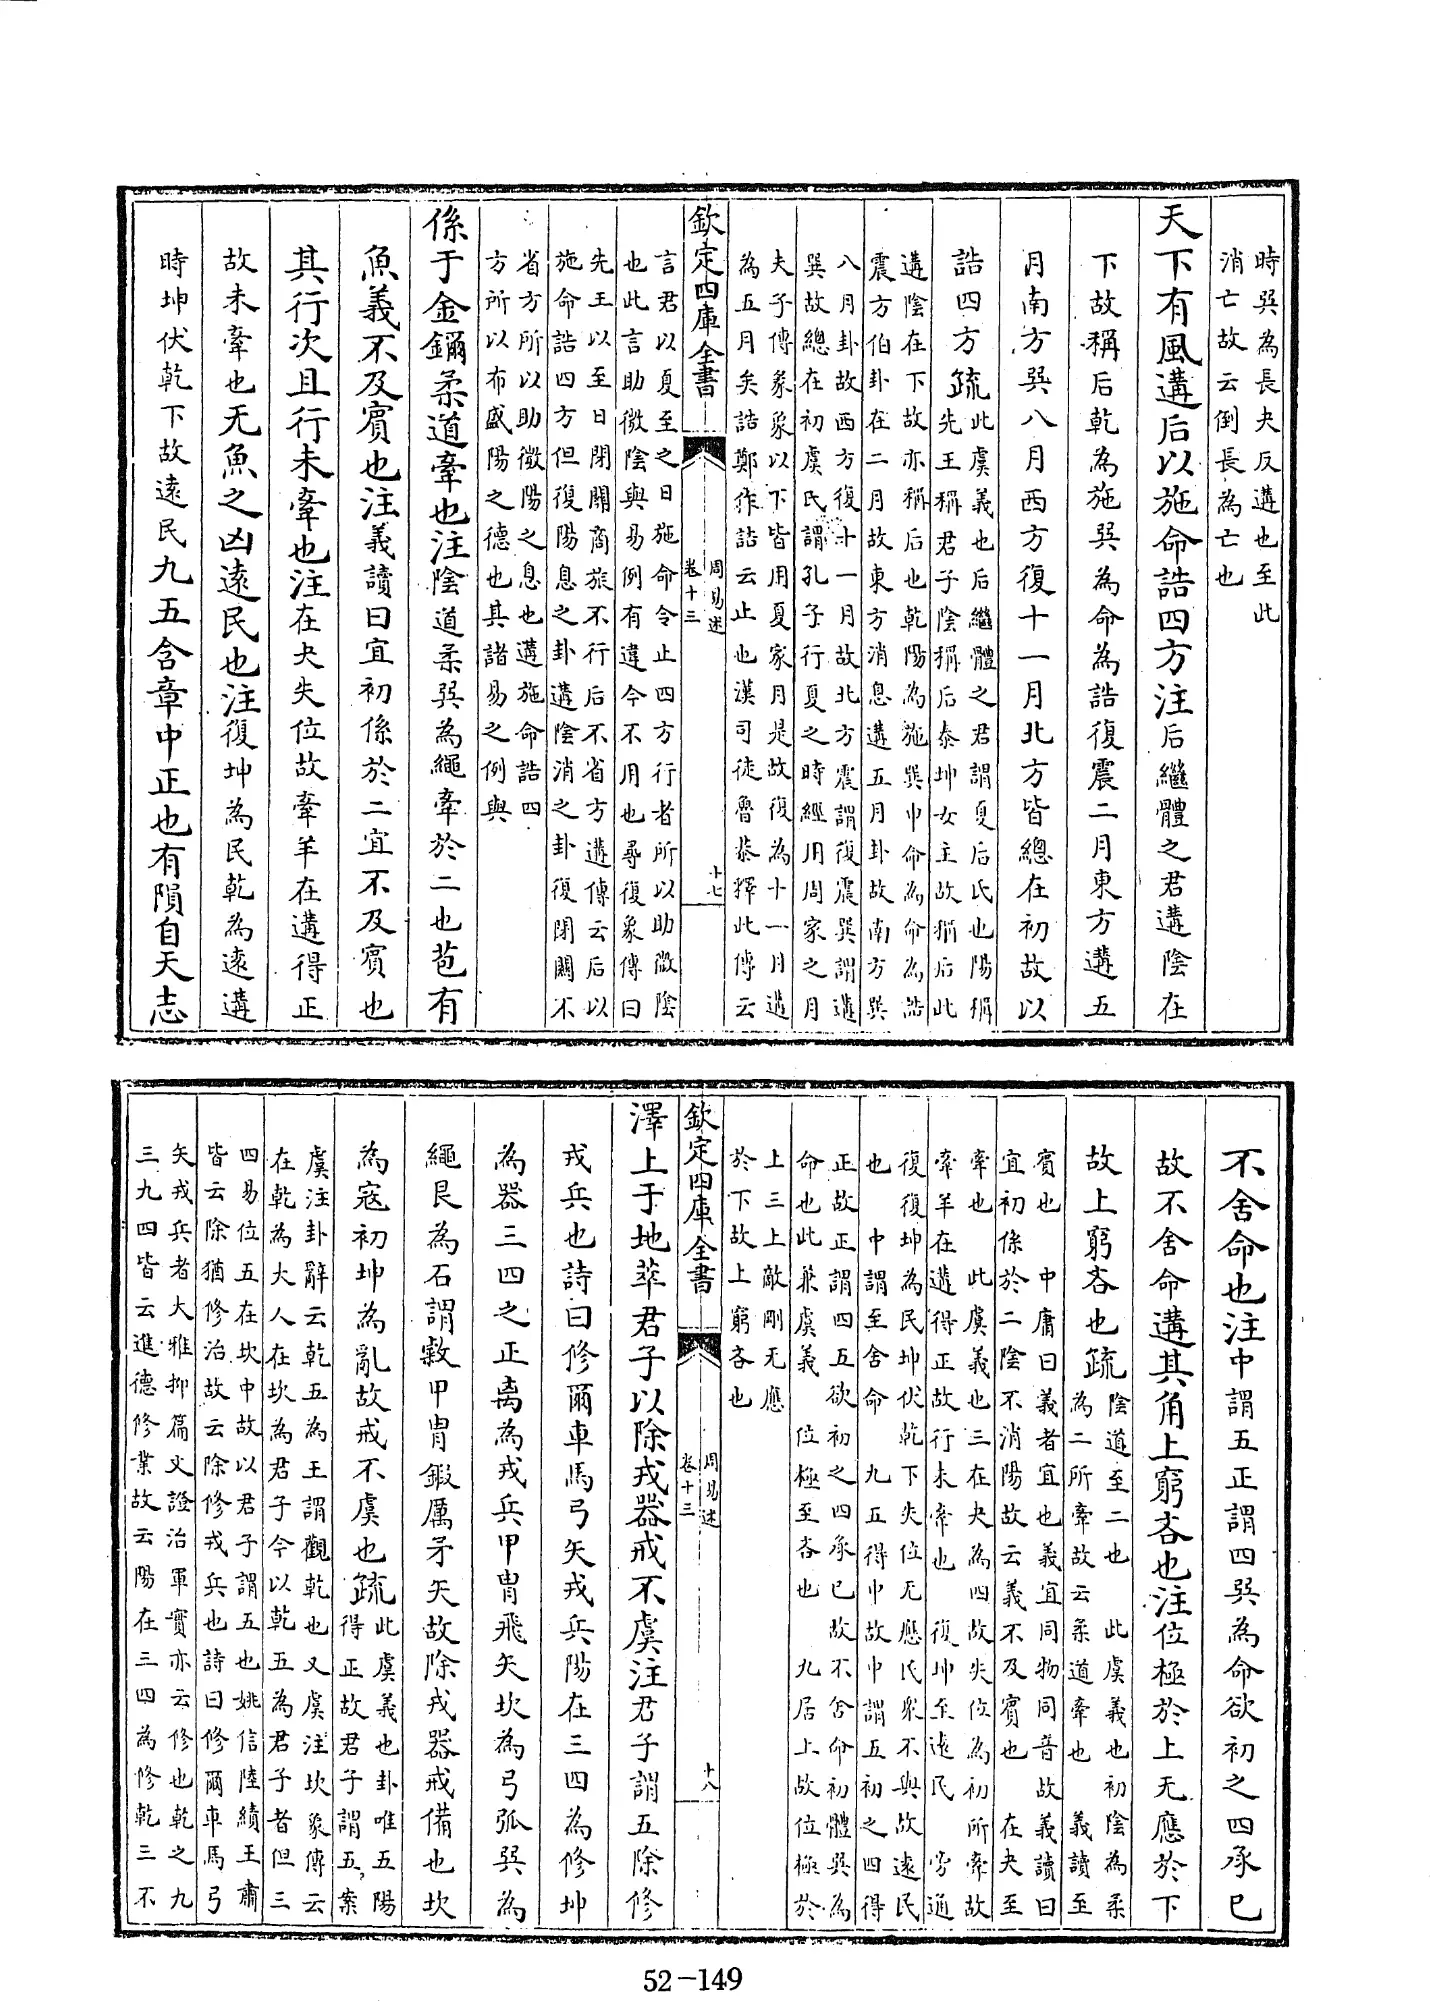 時巽為長夬反遘也至此
消亡故云倒長為亡也
天下有風遘后以施命誥四方注后繼體之君遘陰在
下故稱后乾為施巽為命為誥復震二月東方遘五
月南方巽八月西方復十一月北方皆總在初故以
誥四方疏此虞義也后繼體之君謂夏后氏也陽稱
先王稱君子陰稱后泰坤女主故稱后此
遘陰在下故亦稱后也乾陽為施巽申命為命為誥
震方伯卦在二月故東方消息遘五月卦故南方巽
八月卦故西方復十一月故北方震謂復震巽謂遘
巽故總在初虞氏謂孔子行夏之時經用周家之月
夫子傳彖象以下皆用夏家月是故復為十一月遘
為五月矣誥鄭作詰云止也漢司徒魯恭釋此傳云
欽定四庫全書
周易述
卷十三
十七
言君以夏至之日施命令止四方行者所以助微陰
也此言助微陰與易例有違今不用也尋復象傳曰
先王以至日閉關商旅不行后不省方遘傳云后以
施命誥四方但復陽息之卦遘陰消之卦復閉關不
省方所以助微陽之息也遘施命誥四
方所以布盛陽之德也其諸易之例與
係于金鑈柔道牽也注陰道柔巽為繩牽於二也苞有
魚義不及賓也注義讀曰宜初係於二宜不及賓也
其行次且行未牽也注在夬失位故牽羊在遘得正
故未牽也无魚之凶遠民也注復坤為民乾為遠遘
時坤伏乾下故遠民九五含章中正也有隕自天志
不舍命也注中謂五正謂四巽為命欲初之四承已
故不舍命遘其角上窮吝也注位極於上无應於下
故上窮吝也疏陰道至二也　此虞義也初陰為柔
為二所牽故云柔道牽也　義讀至
賓也　中庸曰義者宜也義宜同物同音故義讀曰
宜初係於二陰不消陽故云義不及賓也　在夬至
牽也　此虞義也三在夬為四故失位為初所牽故
牽羊在遘得正故行未牽也　復坤至遠民　旁通
復復坤為民坤伏乾下失位无應民衆不與故遠民
也　中謂至舍命　九五得中故中謂五初之四得
正故正謂四五欲初之四承已故不舍命初體巽為
命也此兼虞義　位極至吝也　九居上故位極於
上三上敵剛无應
於下故上窮吝也
欽定四庫全書
周易述
卷十三
十八
澤上于地萃君子以除戎器戒不虞注君子謂五除修
戎兵也詩曰修爾車馬弓矢戎兵陽在三四為修坤
為器三四之正离為戎兵甲胄飛矢坎為弓弧巽為
繩艮為石謂敹甲胄鍛厲矛矢故除戎器戒備也坎
為寇初坤為亂故戒不虞也疏此虞義也卦唯五陽
得正故君子謂五案
虞注卦辭云乾五為王謂觀乾也又虞注坎彖傳云
在乾為大人在坎為君子今以乾五為君子者但三
四易位五在坎中故以君子謂五也姚信陸績王肅
皆云除猶修治故云除修戎兵也詩曰修爾車馬弓
矢戎兵者大雅抑篇文證治軍實亦云修也乾之九
三九四皆云進德修業故云陽在三四為修乾三不
52-149